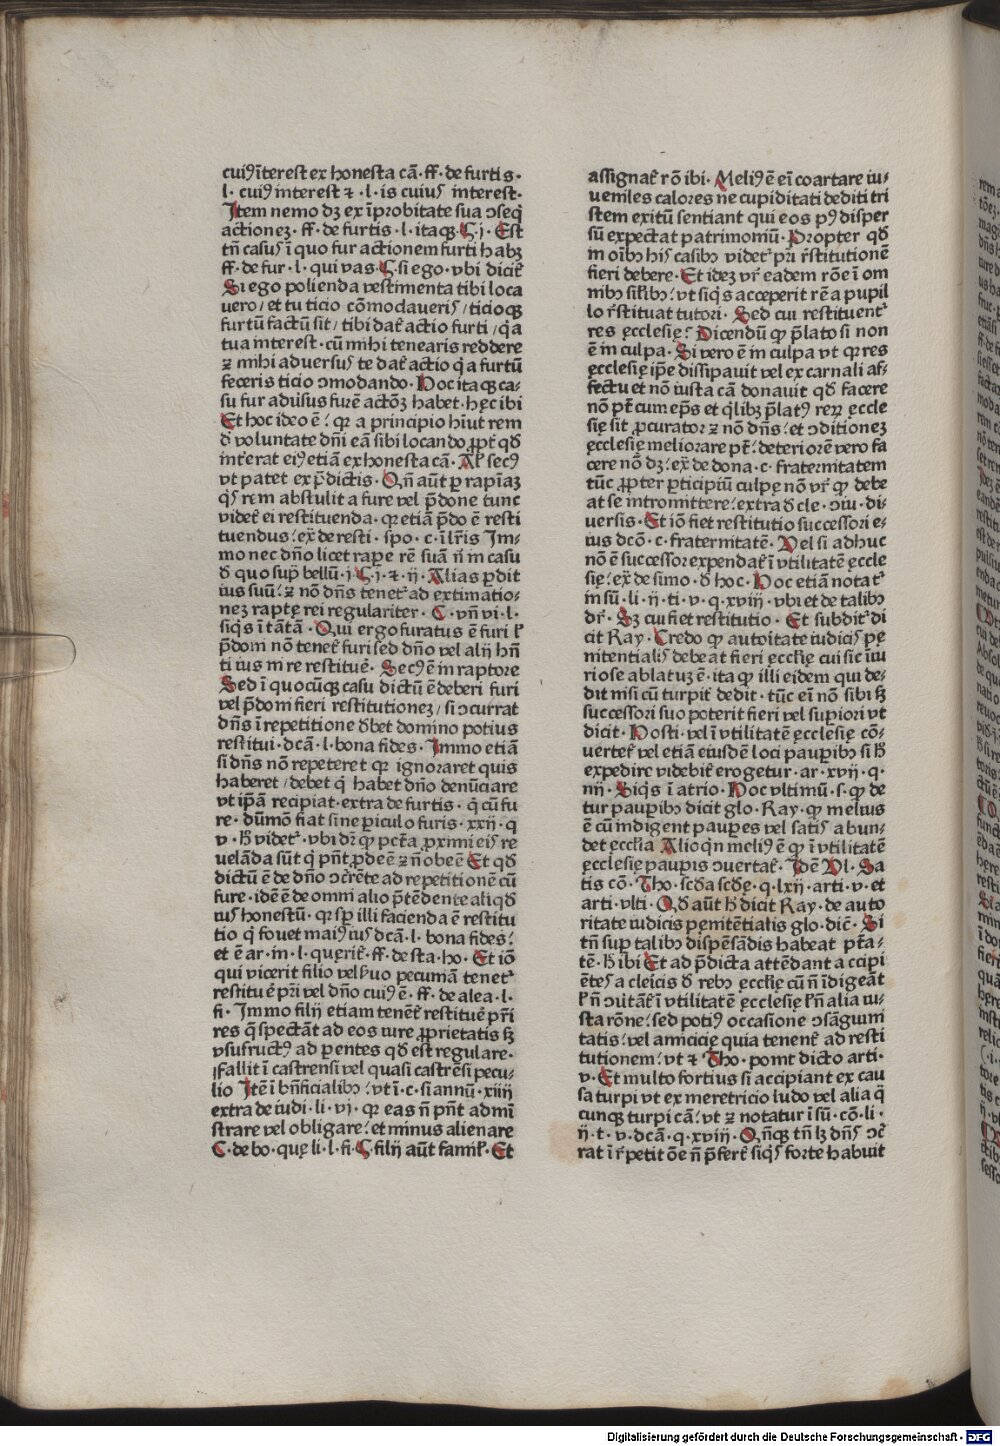 cuiꝰ īterest ex honesta cā · ff · de furtis ·
l · cuiꝰ interest ⁊ · l · is cuiuſ interest ·
Item nemo dꝫ ex īprobitate sua ↄseq̄
actionez · ff · de furtis · l · itaqꝫ · C · j · Est
tn̄ casuſ ī quo fur actionem furti habꝫ
ff · de fur · l · qui vas · C · si ego · vbi dicit᷑
Si ego polienda vestimenta tibi loca
uero / et tu ticio cōmodaueriſ / ticioqꝫ
furtū factū sit / tibi dat᷑ actio furti / q̓a
tua interest · cū mihi tenearis reddere
⁊ mihi aduersuſ te dat᷑ actio q̓a furtū
feceris ticio ↄmodando · Hoc itaqꝫ ca-
su fur aduīsus furē actōꝫ habet · hęc ibi
Et hoc ideo ē · qꝛ a principio hīuit rem
d̓ voluntate dn̄i eā sibi locando ꝓpt᷑ qđ
int᷑erat eiꝰ etiā ex honesta cā · Al᷑ secꝰ
vt patet ex p̄dictis · Qn̄ aūt ꝑ rapīaꝫ
qͥſ rem abstulit a fure vel p̄done tunc
videt᷑ ei restituenda · qꝛ etiā p̄do ē resti
tuendus · ex̄ de resti · spo · c · īlr̄is Im-
mo nec dn̄o licet rapꝑe rē suā n̄ in casu
d̓ quo sup̄ bellū · j · C · j · ⁊ · ij · Alias ꝑdit
ius suū · ⁊ nō dn̄s tenet᷑ ad extimatio-
neꝫ raptę rei regulariter · C · vn̄ vi · l ·
siqͥs ī tātā · Qui ergo furatus ē furi l᷑
p̄doni nō tenet᷑ furi sed dn̄o vel alij hn̄
ti ius in re restituē · Secꝰ ē in raptore
Sed ī quocūqꝫ casu dictū ē deberi furi
vel p̄doni fieri restitutioneꝫ / si ↄcurrat
dn̄s ī repetitione dꝫbet domino potius
restitui · dcā · l · bona fides · Immo etiā
si dn̄s nō repeteret qꝛ ignoraret quis
haberet / debet q̓ habet dn̄o denūciare
vt ip̄ā recipiat · extra de furtis · q̓ cū fu
re · dūmō fiat sine periculo furis · xxij · q
v · h̄ videt᷑ · vbi dr̄ qꝙ pctā ꝓximi eiſ re
uelāda sūt q̓ pn̄t ꝓdeē ⁊ n̄ obeē Et qđ
dictū ē de dn̄o ↄcr̄ēte ad repetitionē cū
fure · idē ē de omni alio p̄tēdente aliqđ
iuſ honestū · qꝛ sp̄ illi facienda ē restitu
tio q̓ fouet maiꝰ iuſ dcā · l · bona fides ·
et ē ar · in · l · quęrit᷑ · ff · de sta · ho · Et iō
qui vicerit filio vel ẜuo pecuniā tenet᷑
restituē pr̄i vel dn̄o cuiꝰ ē · ff · de alea · l ·
fi · Immo filij etiam tenēt᷑ restituē pr̄i
res q̄ spectāt ad eos iure ꝓprietatis sꝫ
vsufructꝰ ad ꝑentes qđ est regulare ·
fallit ī castrensi vel quasi castrēsi pecu-
lio Itē ī bn̄ficialibꝰ · vt ī · c · si annū · xiiij
extra de iudi · li · vj · qꝛ eas n̄ pn̄t admī
strare vel obligare · et minus alienare
C · de bo · quę li · l · fi · C filij aūt famil᷑ · Et
assignat᷑ rō ibi · Meliꝰ ē eī coartare iu-
ueniles calores ne cupiditati dediti tri
stem exitū sentiant qui eos pꝰ disper
sū expectat patrimoniū · Propter qđ
in oībꝰ hiſ casibꝰ videt᷑ pr̄i r̄stitutionē
fieri debere · Et ideꝫ vr̄ eadem rōe ī om
nibꝰ sil᷑ibꝰ · vt siqͥs acceperit rē a pupil
lo r̄stituat tutori · Sed cui restituent᷑
res ęcclesię · Dicendū qꝙ p̄lato si non
ē in culpa · Si vero ē in culpa vt qꝛ res
ęcclesię ip̄e dissipauit vel ex carnali af-
fectu et nō iusta cā donauit qđ facere
nō pt̄ cum ep̄s et q̓libꝫ p̄latꝰ reꝝ ęccle
się sit ꝓcurator ⁊ nō dn̄s · et ↄditioneꝫ
ęcclesię meliorare pt̄ · deteriorē vero fa
cere nō dꝫ · ex̄ de dona · c · fraternitatem
tūc ꝓpter ꝑticipiū culpę nō vr̄ qꝙ debe
at se intromittere · extra d̓ cle · ↄiu · di-
uersis · Et iō fiet restitutio successori e-
ius dcō · c · fraternitatē · Vel si adhuc
nō ē successor expendat᷑ ī vtilitatē eccle
się · ex̄ de simo · d̓ hoc · Hoc etiā notat᷑
in sū · li · ij · ti · v · q · xviij · vbi et de talibꝰ
dr̄ · Sꝫ cui fiet restitutio · Et subdit᷑ di
cit Ray · Credo qꝙ autoitate iudiciſ pę
nitentialiſ debeat fieri ęcclīę cui sic īiu
riose ablatuꝫ ē · ita qꝙ illi eidem qui de-
dit nisi cū turpit᷑ dedit · tūc eī nō sibi sꝫ
successori suo poterit fieri vel suꝑiori vt
dicit · Hosti · vel ī vtilitatē ęcclesię cō-
uertet᷑ vel etiā eiusdē loci pauꝑibꝰ si h̄
expedire videbit᷑ erogetur · ar · xvij · q ·
iiij · Siqͥs ī atrio · Hoc vltimū · s · qꝙ de
tur pauꝑibꝰ dicit glo · Ray · qꝙ melius
ē cū indigent pauꝑes vel satiſ abun-
det ęcclīa Alioqn̄ meliꝰ ē qꝙ ī vtilitatē
ęcclesię pauꝑis ↄuertat᷑ · Idē Vl · Sa
tis cō · Tho · scđa scđę · q · lxij · arti · v · et
arti · vlti · Qđ aūt h̄ dicit Ray · de auto
ritate iudicis pęnitētialis glo · dic̄ · Si
tn̄ suꝑ talibꝰ dispēsādis habeat pt̄a-
tē · h̄ ibi Et ad p̄dicta attēdant accipi
ētes a cleicis d̓ rebꝰ ęcclīę cū n̄ īdigeāt
l᷑ n̄ ↄūtāt᷑ ī vtilitatē ęcclesię l᷑ n̄ alia iu-
sta rōne · sed potiꝰ occasione ↄsāguini
tatis · vel amicicię quia tenent᷑ ad resti
tutionem · vt ⁊ Tho · ponit dicto arti ·
v · Et multo fortius si accipiant ex cau
sa turpi vt ex meretricio ludo vel alia q̄
cunqꝫ turpi cā · vt ⁊ notatur ī sū · cō · li ·
ij · t · v · dcā · q · xviij · Qn̄qꝫ tn̄ lꝫ dn̄ſ ↄc̄
rat ī r̄petitōe n̄ p̄fert᷑ siqͥſ forte habuit
Digitalisierung gefördert durch die Deutsche Forschungsgemeinschaft · DFG